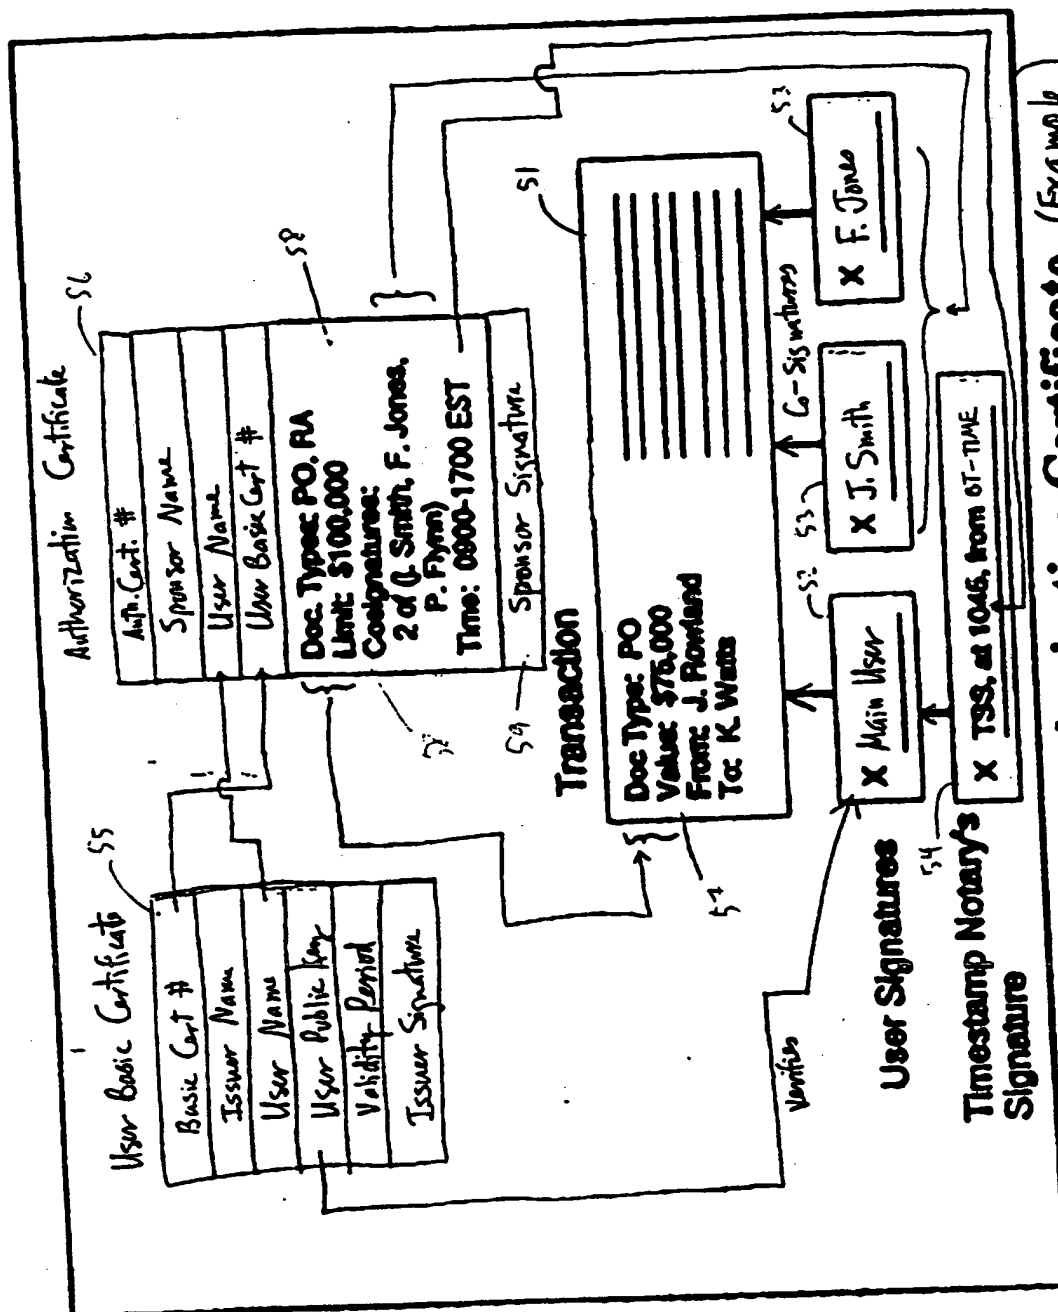 User Basic Certificate
55
Basic Cert #
Issuer Name
User Name
User Public Key
Validity Period
Issuer Signature
Authorization Certificate
56
Auth. Cert. #
Sponsor Name
User Name
User Basic Cert #
Doc. Types: PO, RA
Limit: $100,000
Cosignatures:
2 of (J. Smith, F. Jones,
P. Flynn)
Time: 0900-1700 EST
58
59
Sponsor Signature
Transaction
51
Doc Type: PO
Value: $75,000
From: J. Rowland
To: K. Watts
57
verifies
Co-Signatures
User Signatures
52
X Main User
53
X J. Smith
53
X F. Jones
Timestamp Notary's
Signature
54
X TSS, at 1046, from BT-TIME
Certificate (Example